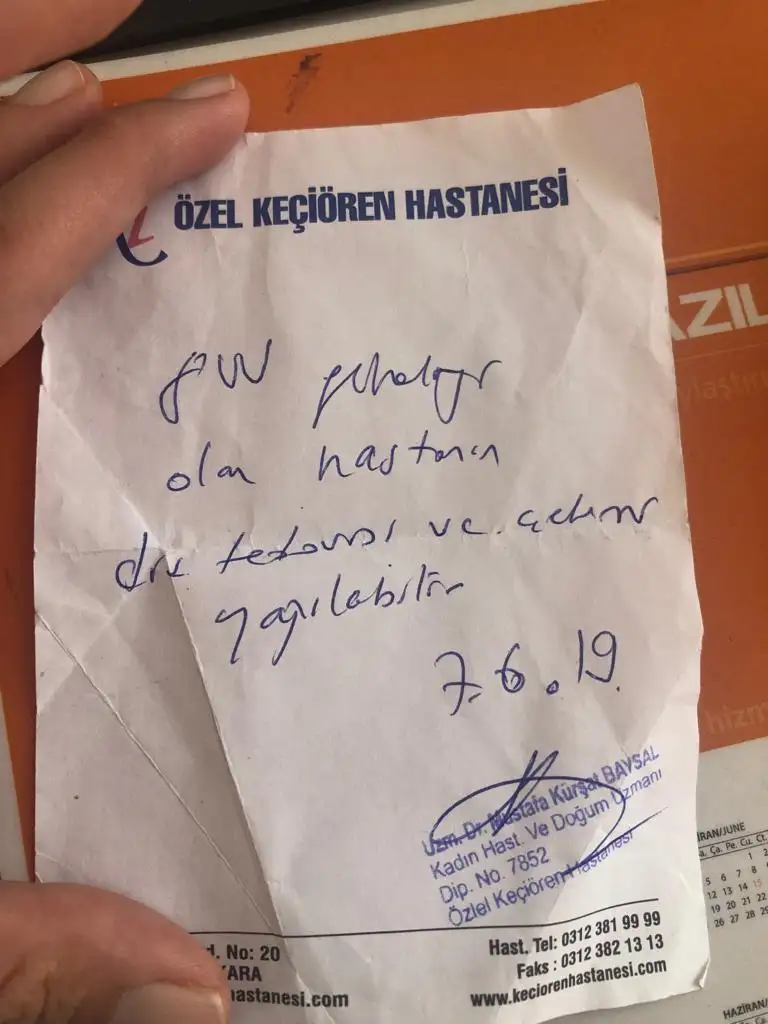 ÖZEL KEÇİÖREN HASTANESİ
olan hastanın
diş tedavisi ve çekimi
yapılabilir
7.6.19
Uzm. Dr. Mustafa Kürşat BAYSAL
Kadın Hast. Ve Doğum Uzmanı
Dip. No. 7852
Özlel Keçiören Hastanesi
d. No: 20
KARA
hastanesi.com
Hast. Tel: 0312 381 99 99
Faks : 0312 382 13 13
www.keciorenhastanesi.com
AZIL
ylaştır
hizm
İRAN/JUNE
a. Ça. Pe. Cu. Ct.
1 2
5 6 7 8
12 13 14 15
19 20 21 22
26 27 28 29
HAZİRAN/